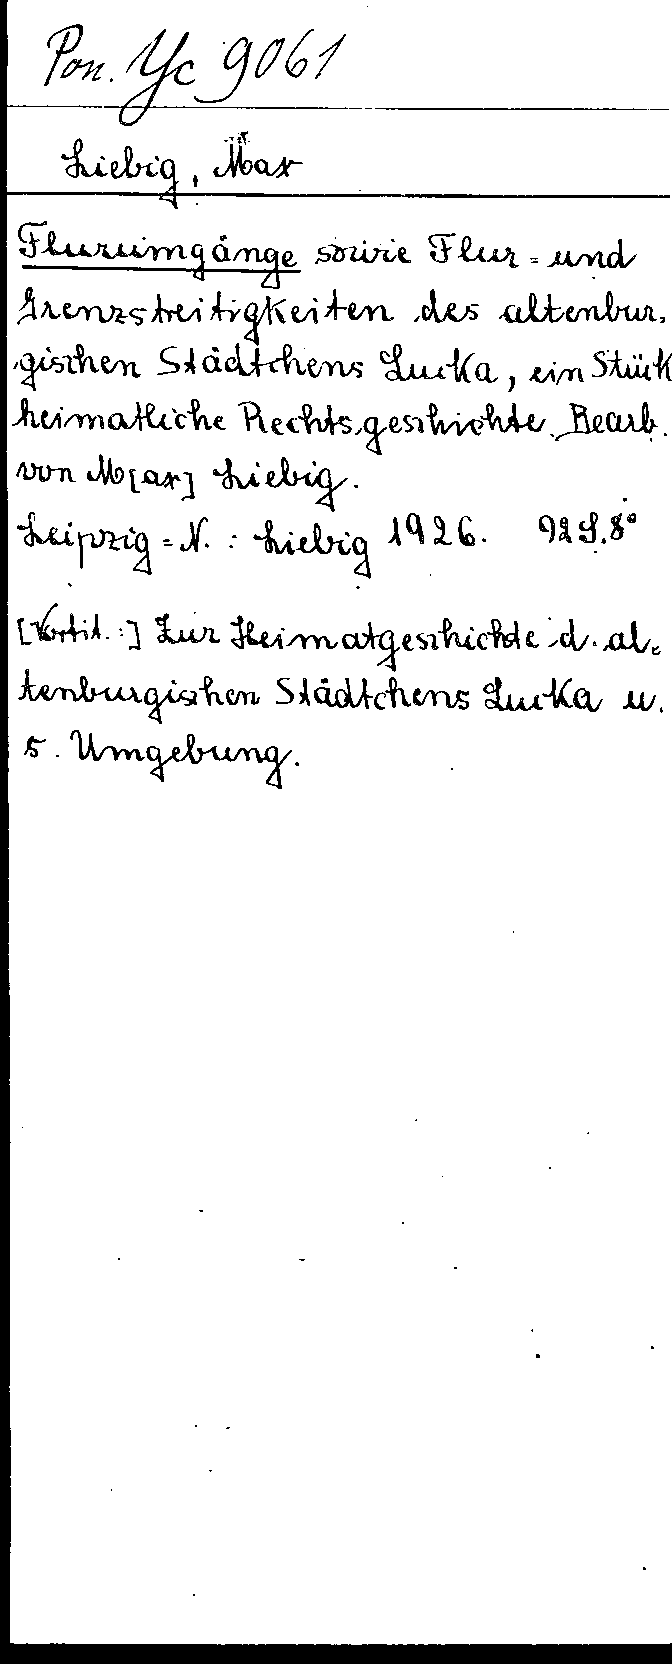 Pon. Yc 9061
Liebig, Max
Flurumgänge sowie Flur- und
Grenzstreitigkeiten des altenbur-
gischen Städtchens Lucka, ein Stück
heimatliche Rechtsgeschichte. Bearb.
von M[ax] Liebig.
Leipzig-N.: Liebig 1926. 92 S. 8°
[Vortit.:] Zur Heimatgeschichte d. al-
tenburgischen Städtchens Lucka u.
s. Umgebung.